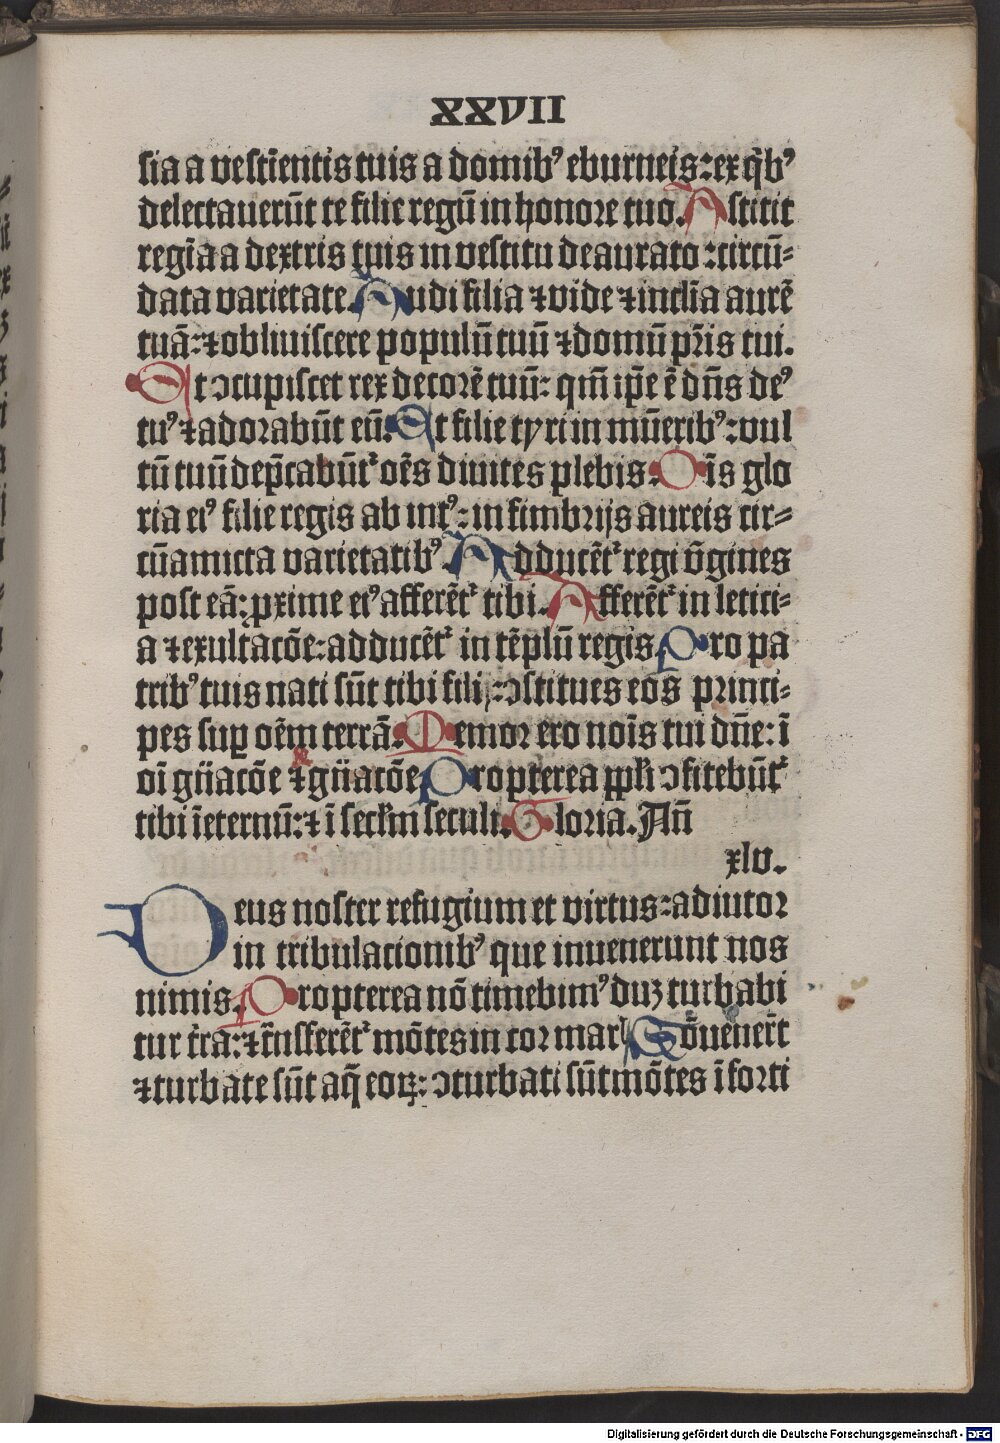 XXVII
sia a vestiẽentis tuis a domibꝰ eburneis: ex q̃bꝰ
delectauerūt te filie regū in honore tuo. Astitit
regīa a dextris tuis in vestitu deaurato: circū⸗
data varietate. Audi filia ⁊ vide ⁊ inclīa aurē
tuā: ⁊ obliuiscere populū tuū ⁊ domū pr̄is tui.
Et ↄcupiscet rex decorē tuū: qm̄ ip̄e ē dn̄s deꝰ
tuꝰ ⁊ adorabūt eū. Et filie tyri in mūeribꝰ: vul
tū tuū dep̄cabūt᷑ oēs diuites plebis. Oīs glo
ria eiꝰ filie regis ab intꝰ: in fimbrijs aureis cir⸗
cūamicta varietatibꝰ. Adducēt᷑ regi v̄gines
post eā: ꝓxime eiꝰ afferēt᷑ tibi. Afferēt᷑ in letici⸗
a ⁊ exultacōe: adducēt᷑ in tēplū regis. Pro pa
tribꝰ tuis nati sūt tibi filij: ↄstitues eos princi⸗
pes suꝑ oēm terrā. Memor ero noīs tui dn̄e: ī
oī gn̄acōe ⁊ gn̄acōe. Propterea ppl̄i ↄfitebūt᷑
tibi īeternū: ⁊ ī secl̄m seculi. Gloria. An̄
xlv.
Deus noster refugium et virtus: adiutor
in tribulacionibꝰ que inuenerunt nos
nimis. Propterea nō timebimꝰ duꝫ turbabi
tur t̄ra: ⁊ tr̄nsferēt᷑ mōtes in cor marꝭ. Sōuener̄t
⁊ turbate sūt aq̄ eoꝝ: ↄturbati sūt mōtes ī forti
Digitalisierung gefördert durch die Deutsche Forschungsgemeinschaft - DFG